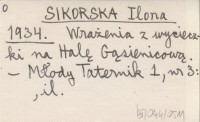 o
SIKORSKA Ilona
1934. Wrażenia z wyciecz-
ki na Halę Gąsienicową.
- Młody Taternik 1, nr 3:
, il.